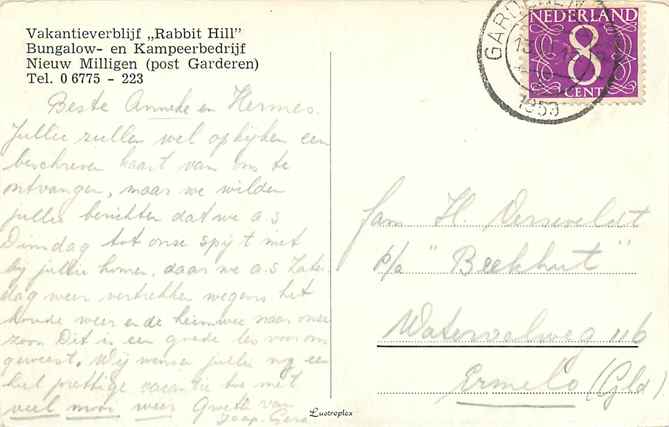 Vakantieverblijf „Rabbit Hill”
Bungalow- en Kampeerbedrijf
Nieuw Milligen (post Garderen)
Tel. 0 6775 - 223
Beste Anneke en Hermes.
Jullie zullen wel opkijken een
beschreven kaart van ons te
ontvangen, maar we wilden
jullie berichten dat we a.s
Dinsdag tot onze spijt niet
bij jullie komen, daar we a.s Zater-
dag weer vertrekken wegens het
koude weer en de heimwee naar onze
zoon Dit is een goede les voor ons
geweest. Wij wensen jullie nog een
heel prettige vacantie toe met
veel mooi weer Groeten van
Jaap-
NEDERLAND
8
CENT
GARDEREN
1959
fam H.
p/a "Beekhut"
Watervalweg 116
Ermelo (Gld)
Lustroplex